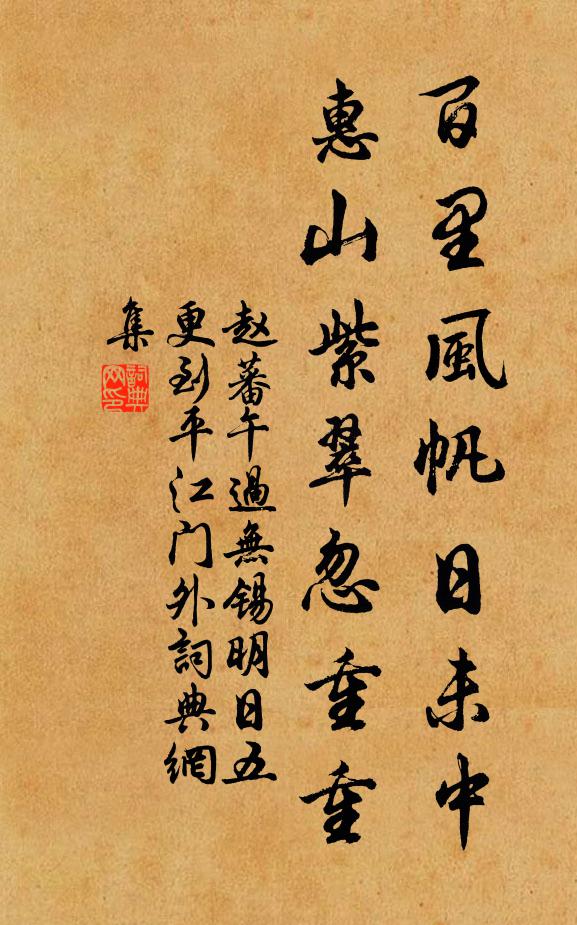 百里風帆日未中
惠山紫翠忽重重
赵蕃午過無錫明日五
更到平江门外詞典網
集
詞典網印